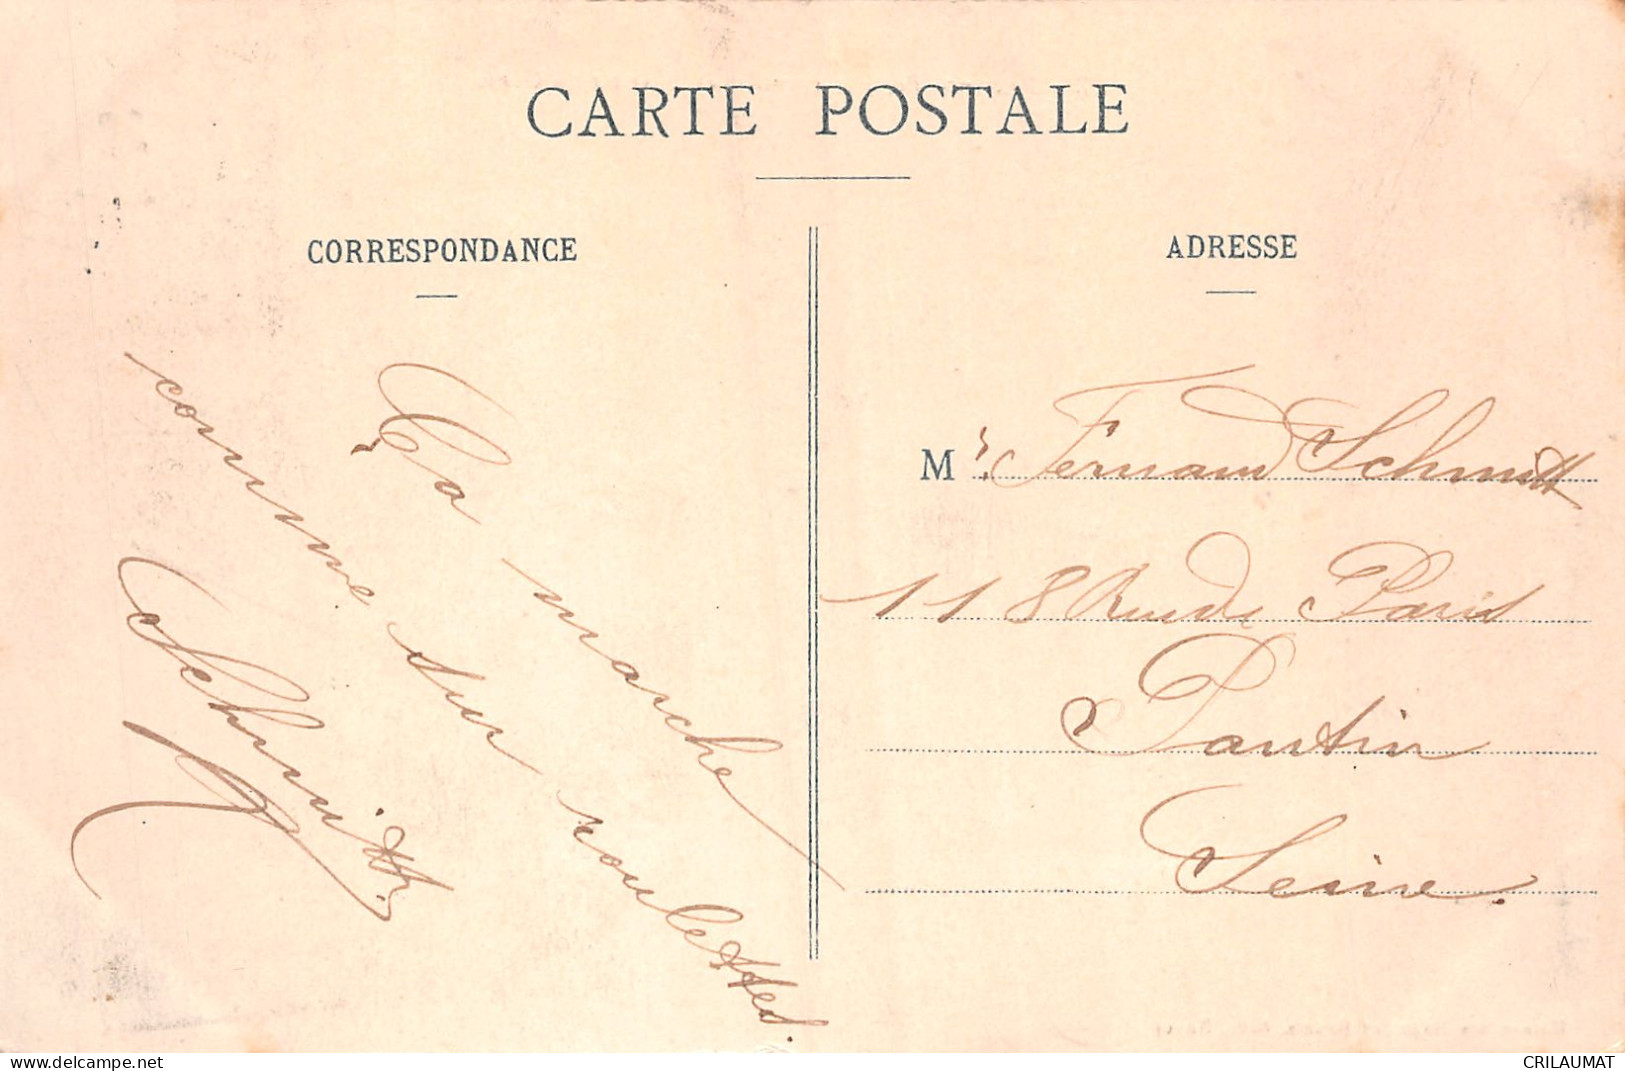 CARTE POSTALE
CORRESPONDANCE
Ça marche
comme sur roulettes.
Schmitt.
ADRESSE
M r. Fernand Schmitt
118 Rue de Paris
Pantin
Seine.
CRILAUMAT